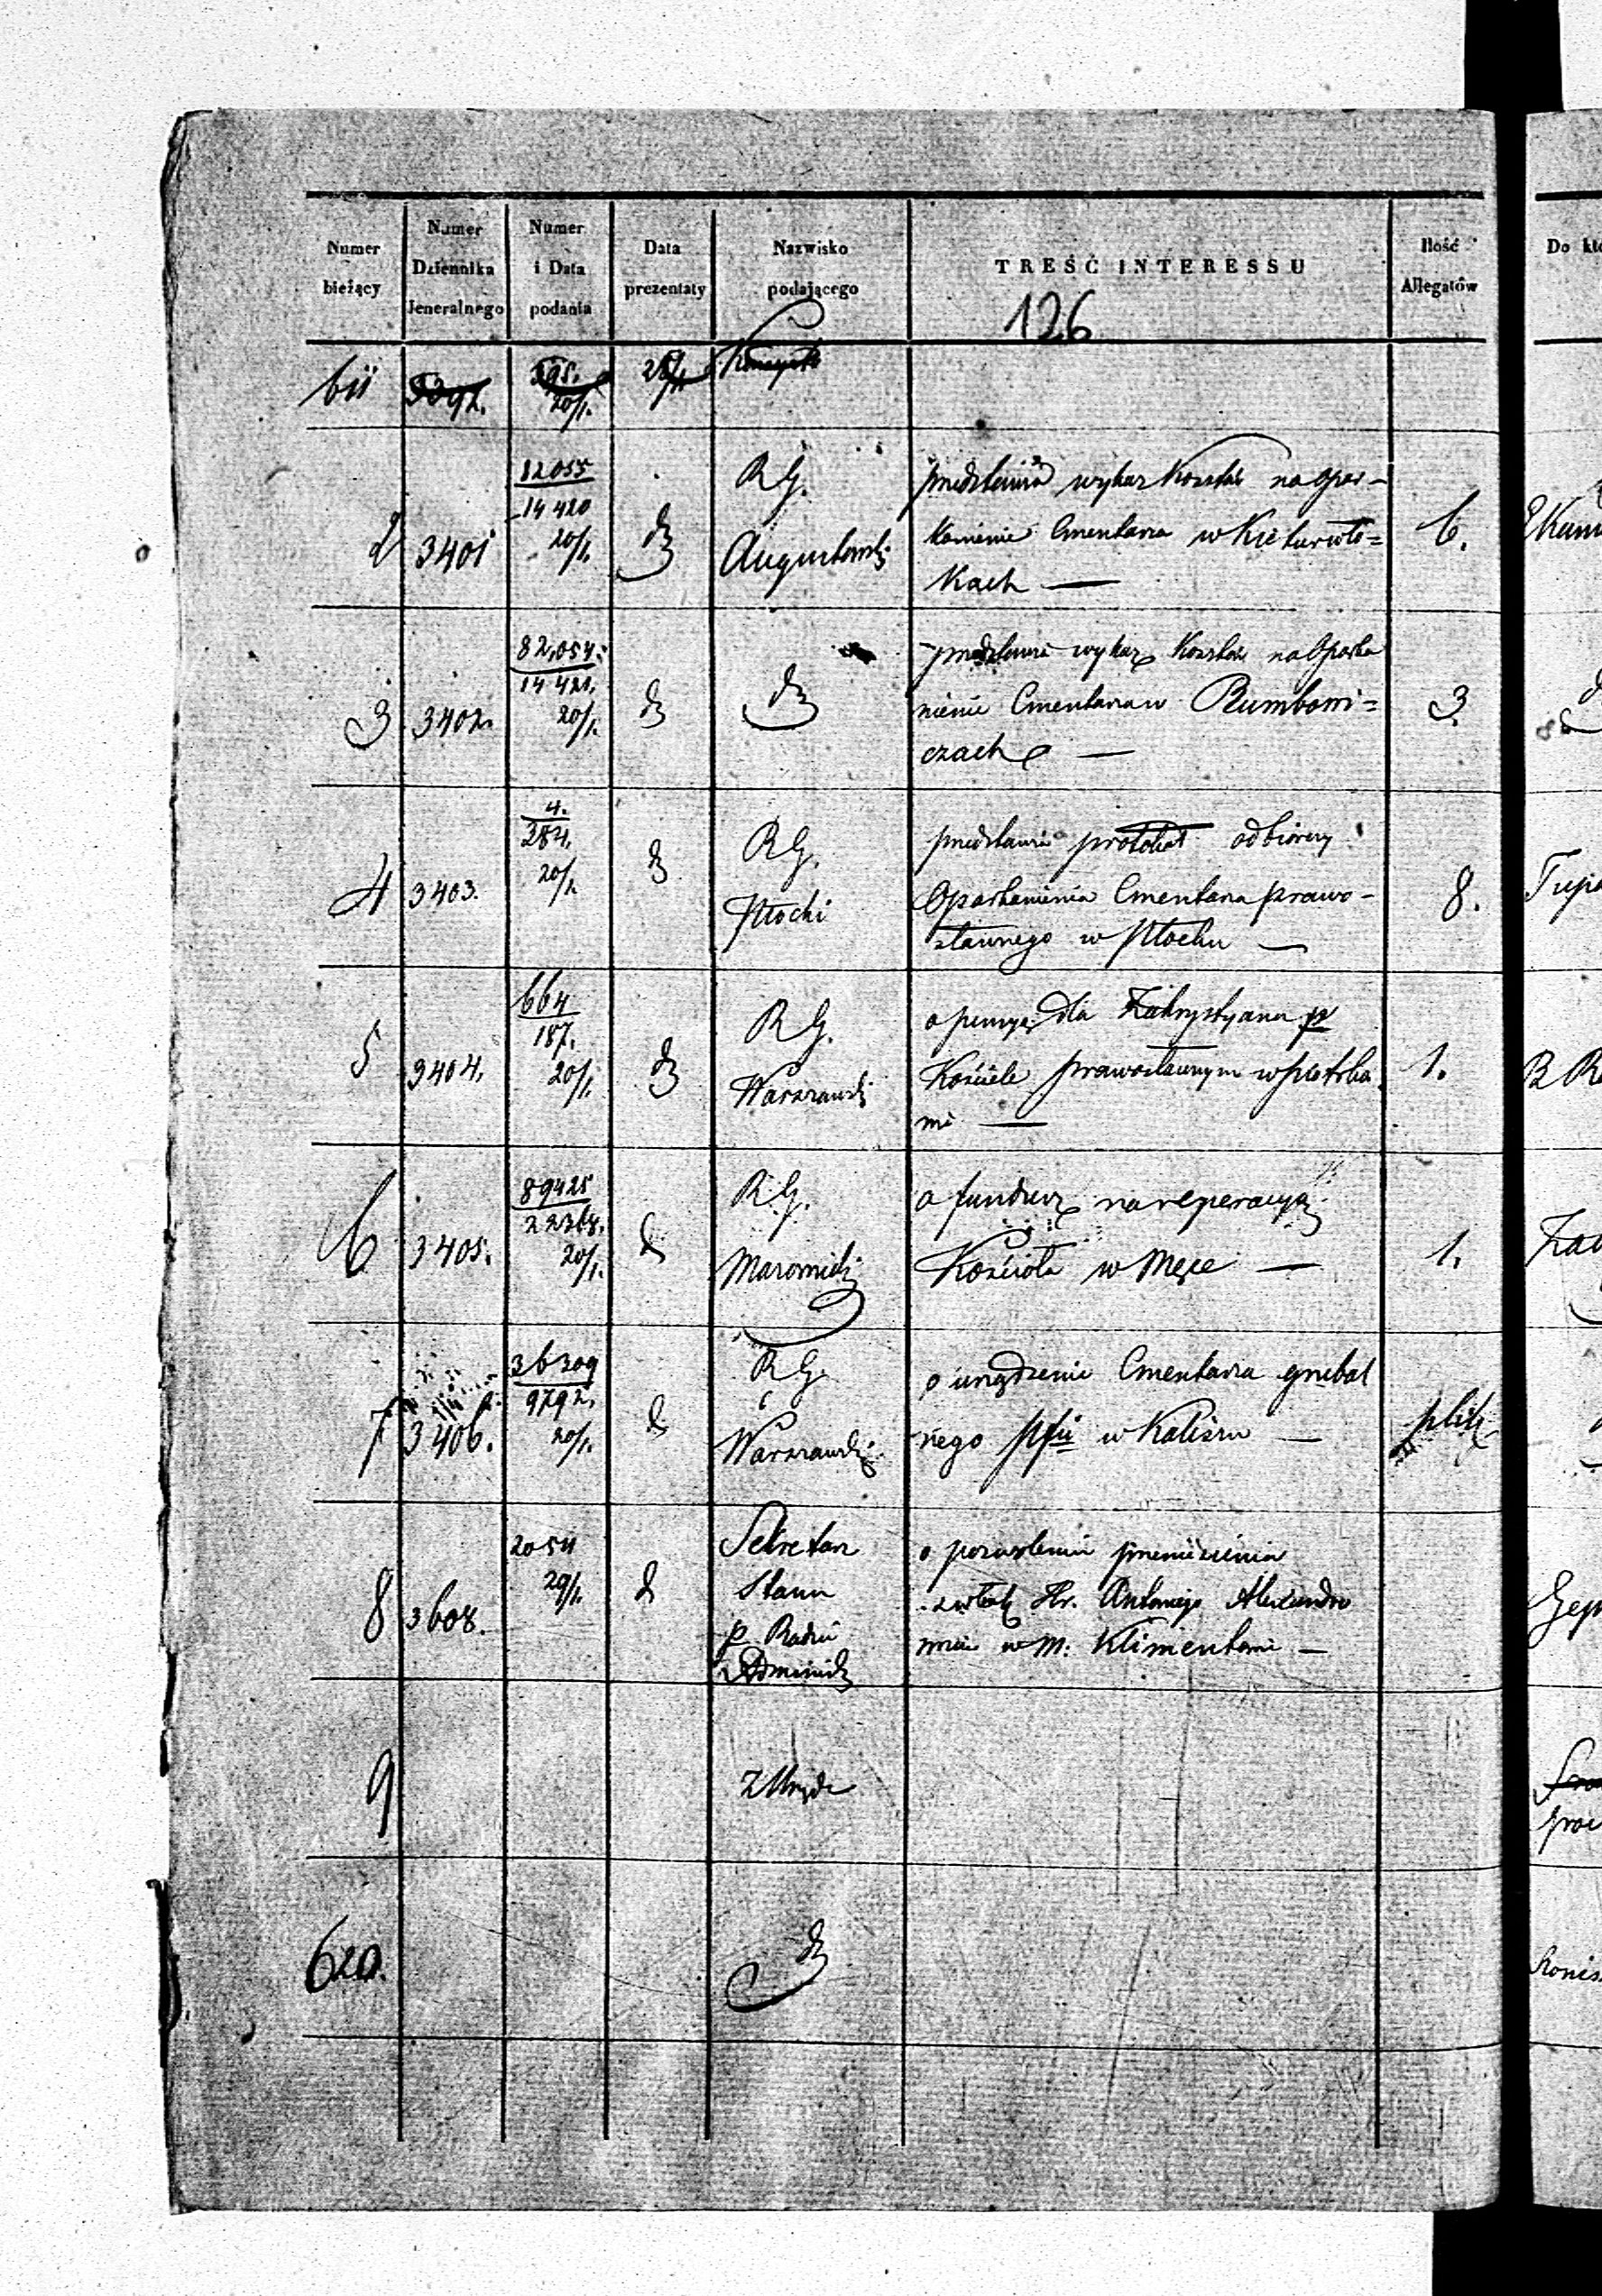 Numer bieżący
Numer Dziennika Jeneralnego
Numer i Data podania
Data prezentaty
Nazwisko podającego
TREŚĆ INTERESSU
Ilość Allegatów
126
611
20/1.
2 3401
82055
14420
20/1.
R G.
Augustowski
wykaz kosztów na opar-
kanienie Cmentarza w Kieturwło=
kach —
6.
3 3402.
82,054.
14421.
20/1.
wykaz kosztów na oparka
nienie Cmentarza w Rumbowi=
czach —
3.
4 3403.
4.
284.
20/1.
R G.
Płocki
przedstawia protokół odbiorczy
oparkanienia Cmentarza prawo-
sławnego w Płocku —
8.
5 3404.
664
187.
20/1.
R G.
Warszawski
o pensyę dla Zakrystyana p
Kościele prawosławnym w Piotrko
wie —
1.
6 3405.
89425
22368.
20/1.
R. G.
Mazowiecki
o fundusz na reperacyą
Kościoła w Męce —
1.
7 3406.
36309
9792.
20/1.
R G.
Warszawski
o urządzenie Cmentarza grzebal
nego w Kaliszu —
plik
8 3608.
2054
29/1.
Sekretarz
Stanu
p. Radzie
Administr
o pozwolenie przeniesienia
zwłok Hr. Antoniego
w m. Klimentowie —
9
z Urzędu
620.